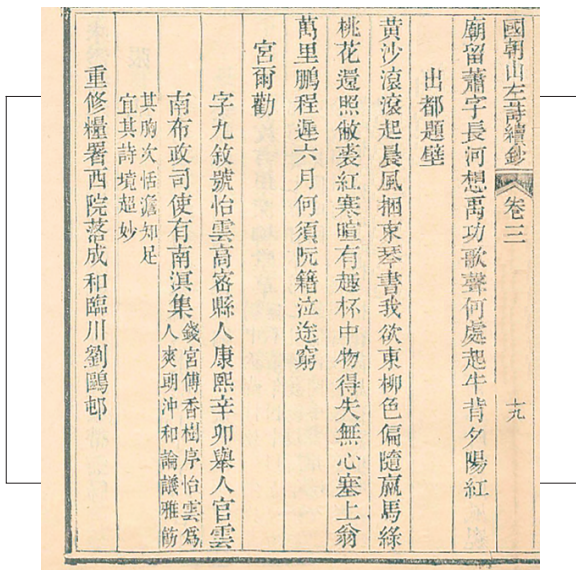 國朝山左詩續鈔 卷三 十九
廟留蕭字長河想禹功歌聲何處起牛背夕陽紅
出都題壁
黃沙滾滾起晨風捆束琴書我欲東柳色偏隨羸馬綠
桃花還照敝裘紅寒暄有趣杯中物得失無心塞上翁
萬里鵬程遲六月何須阮籍泣途窮
宮爾勸
字九敘號怡雲高密縣人康熙辛卯舉人官雲
南布政司使有南溟集
錢宮傅香樹序怡雲為
人爽朗沖和論議雅篤
其胸次恬澹知足
宜其詩境超妙
重修糧署西院落成和臨川劉鷗邨